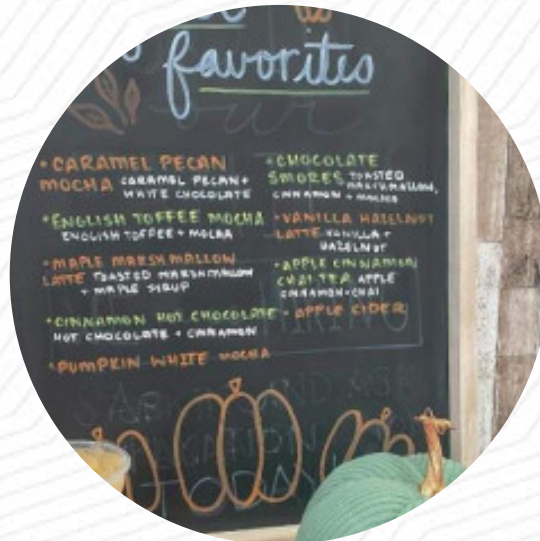 favorites
• CARAMEL PECAN
MOCHA CARAMEL PECAN +
WHITE CHOCOLATE
• ENGLISH TOFFEE MOCHA
ENGLISH TOFFEE + MOCHA
• MAPLE MARSHMALLOW
LATTE TOASTED MARSHMALLOW
+ MAPLE SYRUP
• CINNAMON HOT CHOCOLATE
HOT CHOCOLATE + CINNAMON
• PUMPKIN WHITE MOCHA
• CHOCOLATE
SMORES TOASTED
MARSHMALLOW,
CINNAMON + MOCHA
• VANILLA HAZELNUT
LATTE VANILLA +
HAZELNUT
• APPLE CINNAMON
CHAI TEA APPLE
CINNAMON + CHAI
• APPLE CIDER
HIRING
TODAY